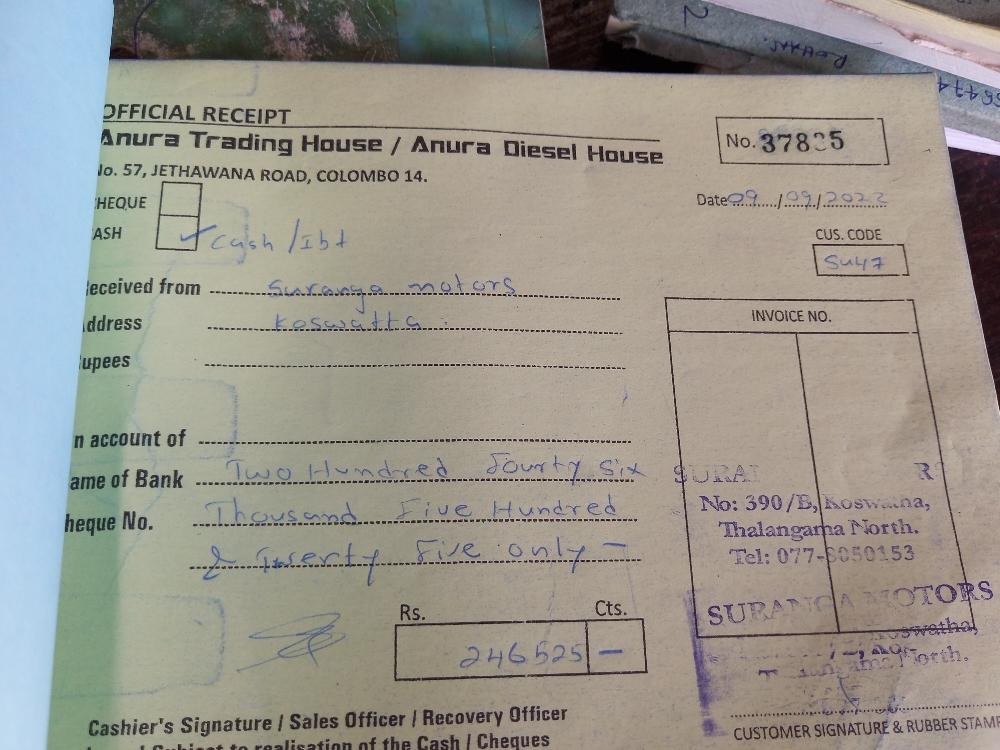 OFFICIAL RECEIPT
Anura Trading House / Anura Diesel House
No. 37835
No. 57, JETHAWANA ROAD, COLOMBO 14.
Date 09/09/2022
HEQUE
ASH Cash / Ibt
CUS. CODE
SU47
eceived from Suranga motors
ddress Koswatta
upees
INVOICE NO.
n account of
ame of Bank Two Hundred Fourty Six
heque No. Thousand Five Hundred
& Twenty Five only -
No: 390/B, Koswatha,
Thalangama North.
Tel: 077-8050153
SURANGA MOTORS
Koswatha,
North.
Rs. Cts.
246525 -
Cashier's Signature / Sales Officer / Recovery Officer
Subject to realisation of the Cash / Cheques
CUSTOMER SIGNATURE & RUBBER STAMP